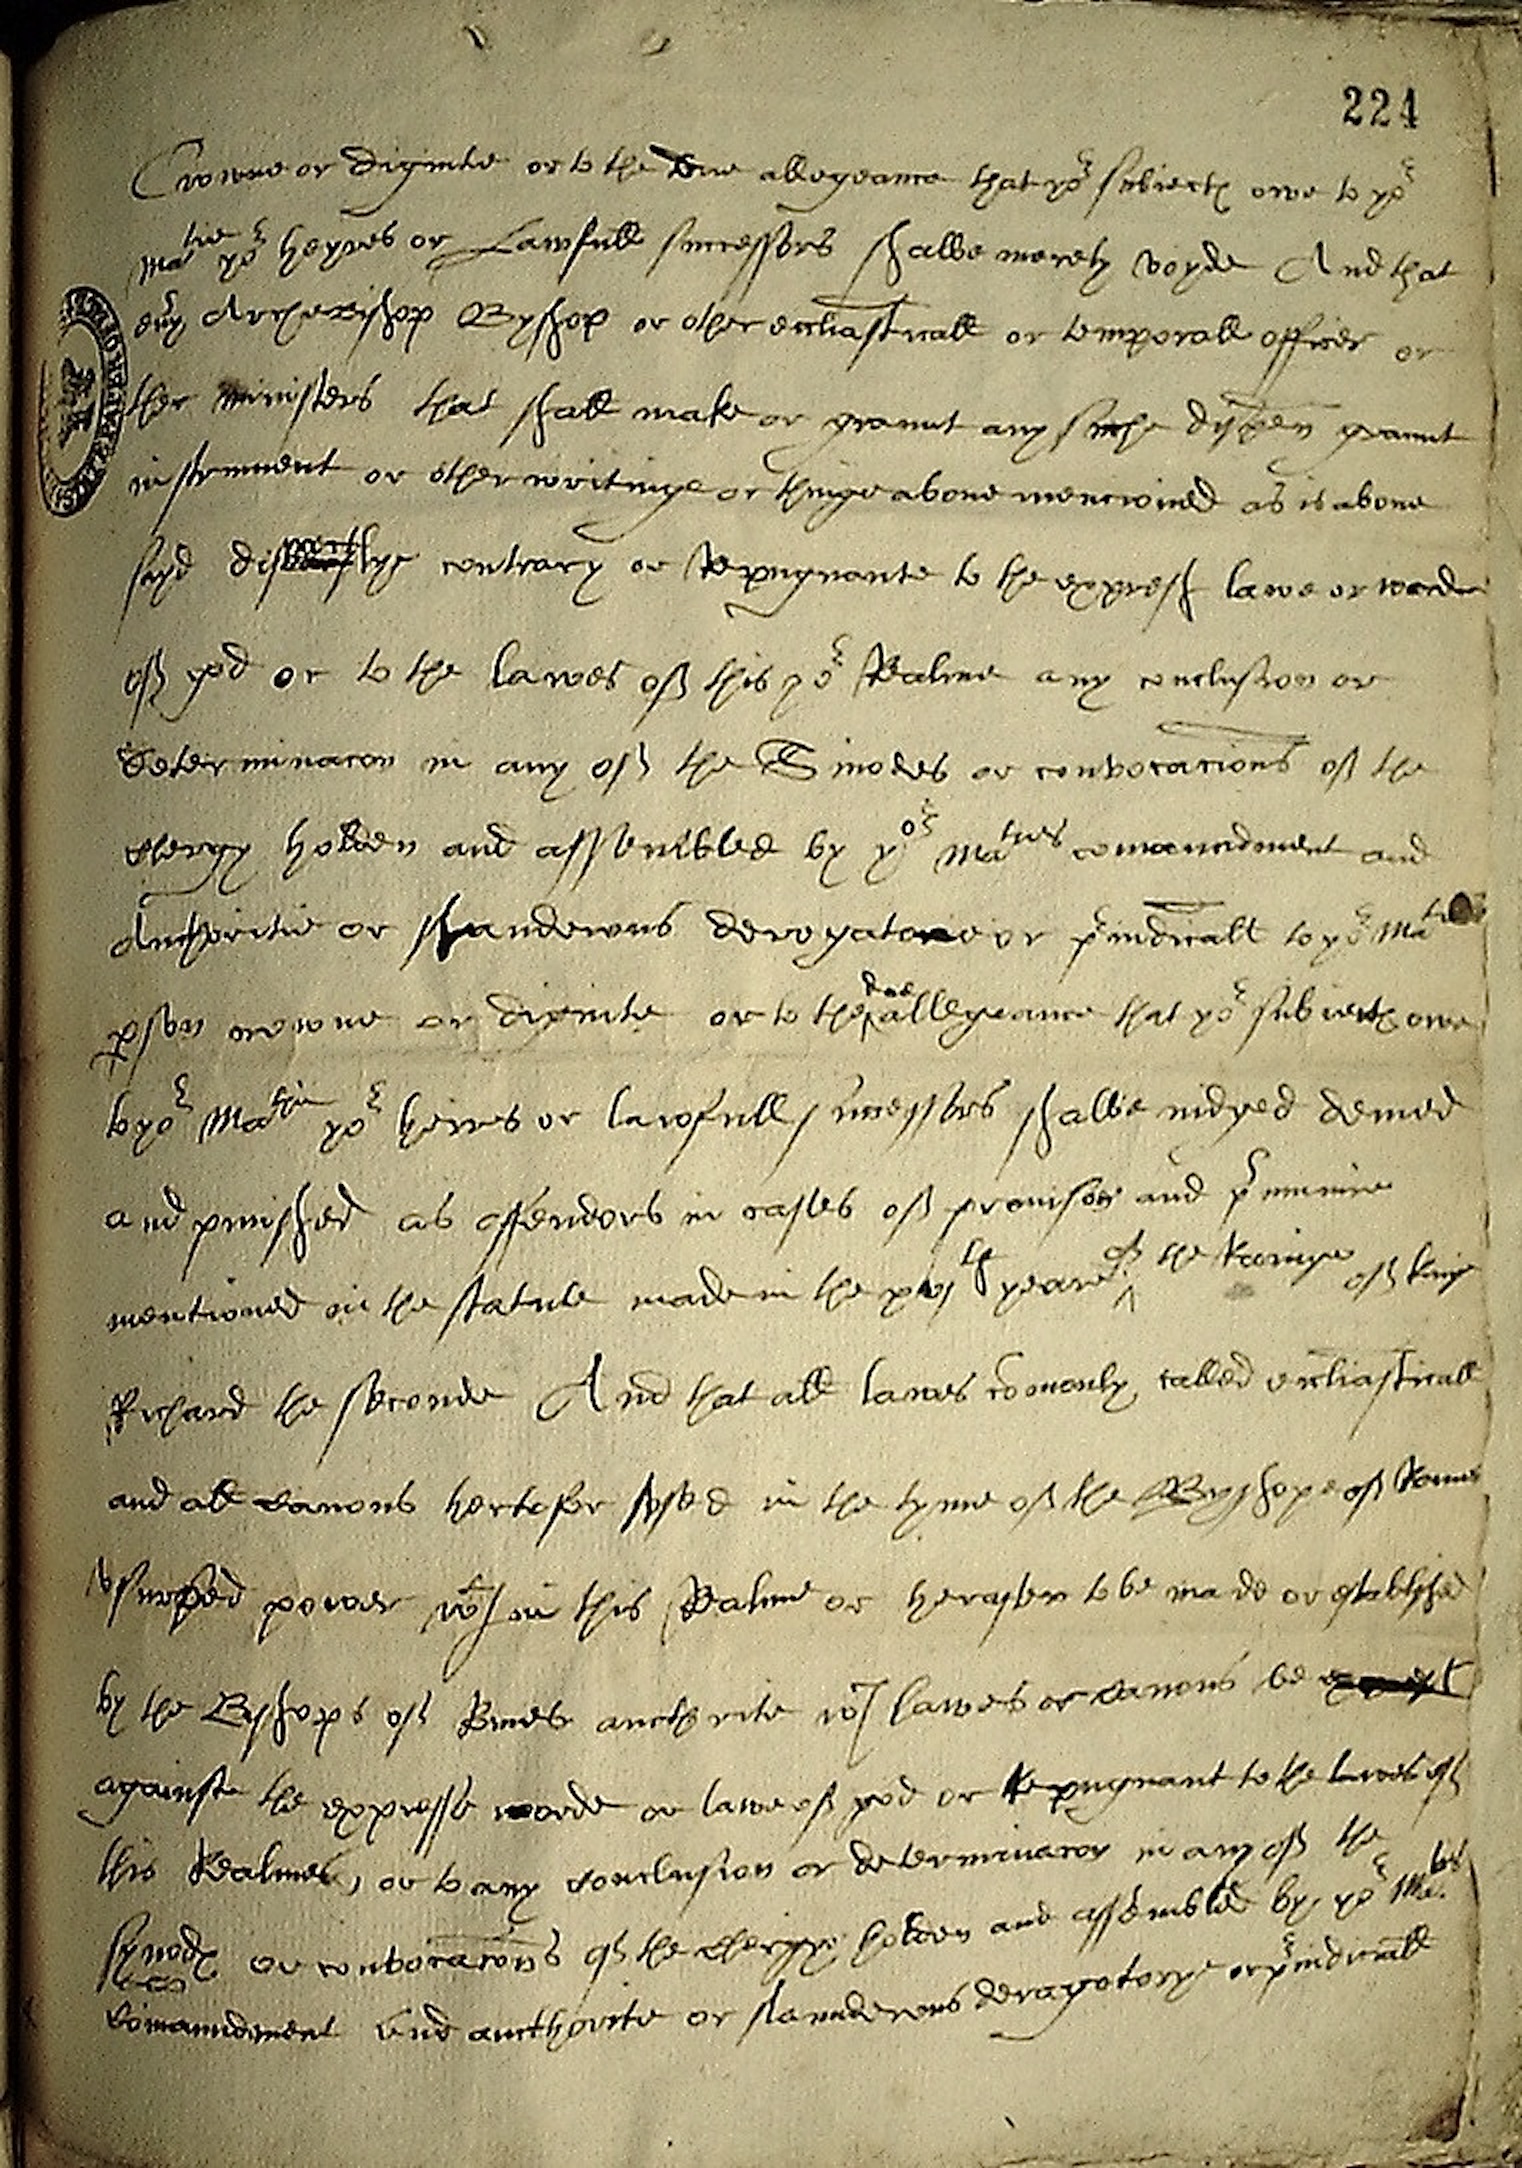 224
Crowne or dignitie or to the due allegeance that yor subiectes owe to yor
Matie yor heyres or Lawfull successors shalbe merely voyde And that
euy Archebishop Byshop or other eccliasticall or temporall officer or
ther ministers that shall make or graunt any suche dispen graunt
instrument or other writinge or thinge aboue mencioned as is aboue
sayd contrary or repugnante to the expresse lawe or worde
off god or to the lawes off this yor Realme any conclusion or
determinacon in any off the Sinodes or convocacions off the
clergy holden and assembled by yor Maties comaundment and
Authoritie or slanderous derogatorie or piudicall to yor Maties
pson crowne or dignitie or to the due allegeance that yor subiectes owe
to yor Matie yor heires or lawfull successors shalbe iudged demed
and punished as offendors in cases off prouision and pmunire
mentioned in the statute made in the xvjth yeare off the Raigne off king
Richard the seconde And that all lawes comonly called eccliasticall
and all canons hertofor vsed in the tyme off the Bysshope off Romes
vsurped power wthin this Realme or herafter to be made or establyshed
by the Byshops off Romes aucthorite wch lawes or canons be
against the expresse worde or lawe off god or repugnant to the lawes off
this Realmes, or to any conclusion or determinacon in any off the
synodes or convocacons off the clergye holden and assembled by yor Maties
Comaundment and aucthorite or slanderous derogatorye or piudicall